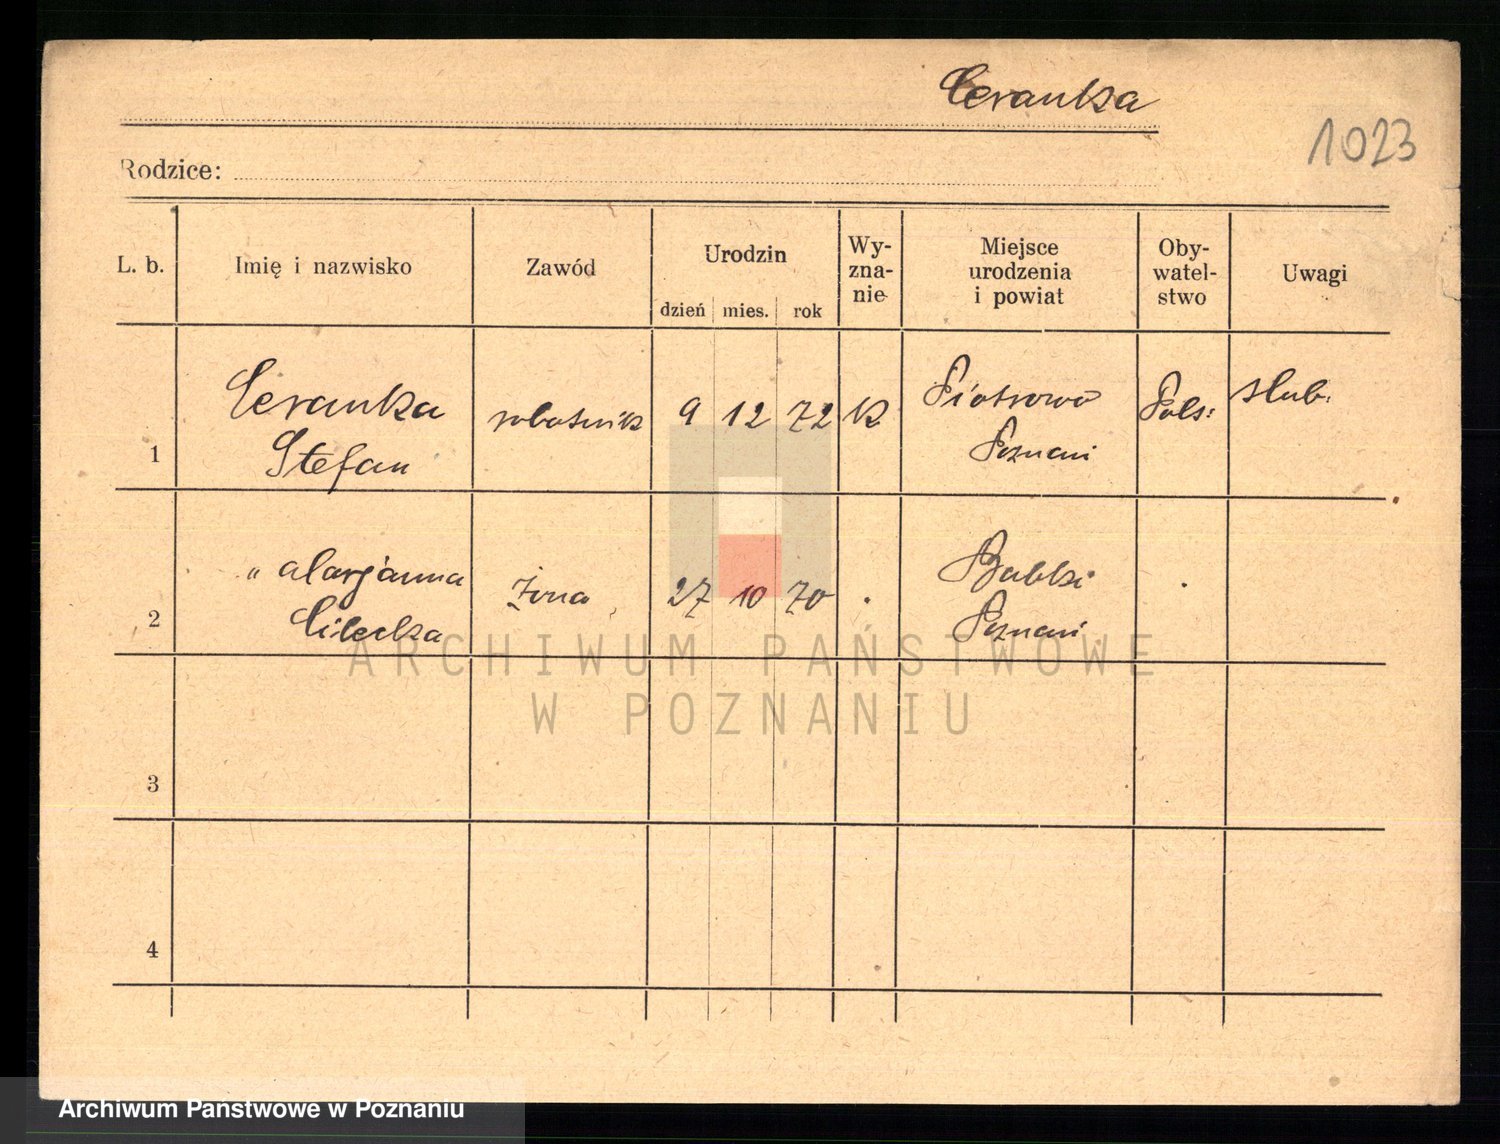 Ceranka
1023
Rodzice:
L. b. Imię i nazwisko Zawód Urodzin dzień mies. rok Wy-zna-nie Miejsce urodzenia i powiat Oby-watel-stwo Uwagi
1 Ceranka Stefan robotnik 9 12 72 k Piotrowo Poznań Pols: slub.
2 " Marjanna Cilecka żona 27 10 70 . Babki Poznań .
3
4
ARCHIWUM PAŃSTWOWE
W POZNANIU
Archiwum Państwowe w Poznaniu